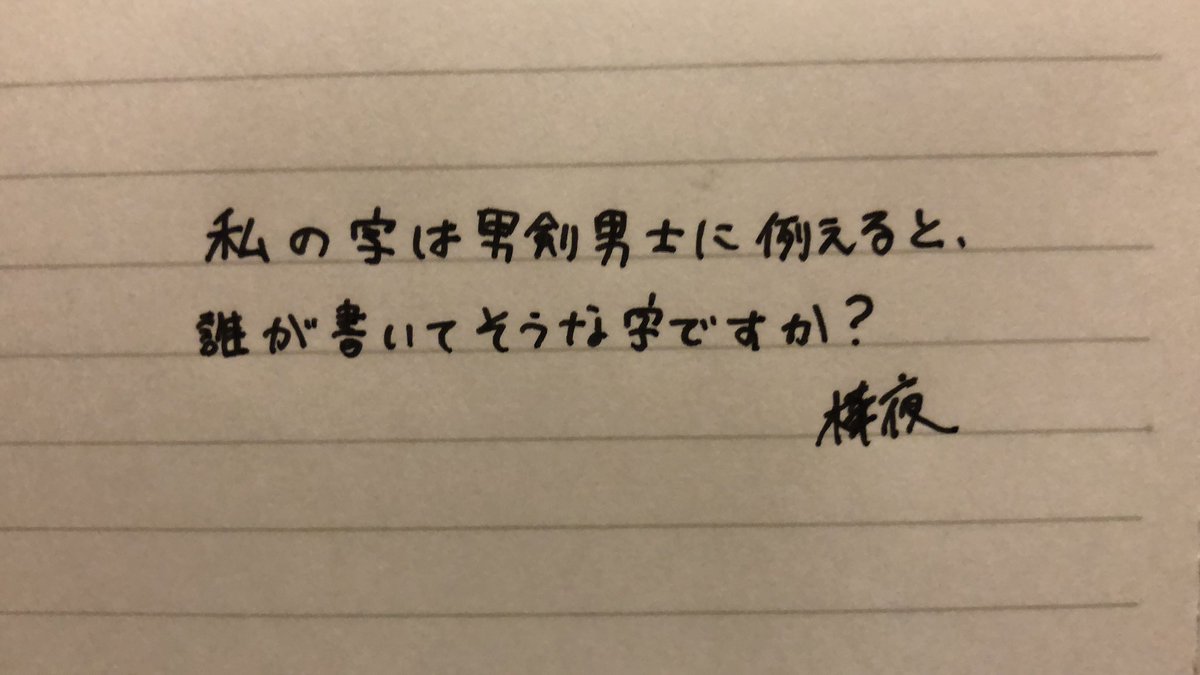 私の字は男剣男士に例えると、
誰が書いてそうな字ですか?
椿夜